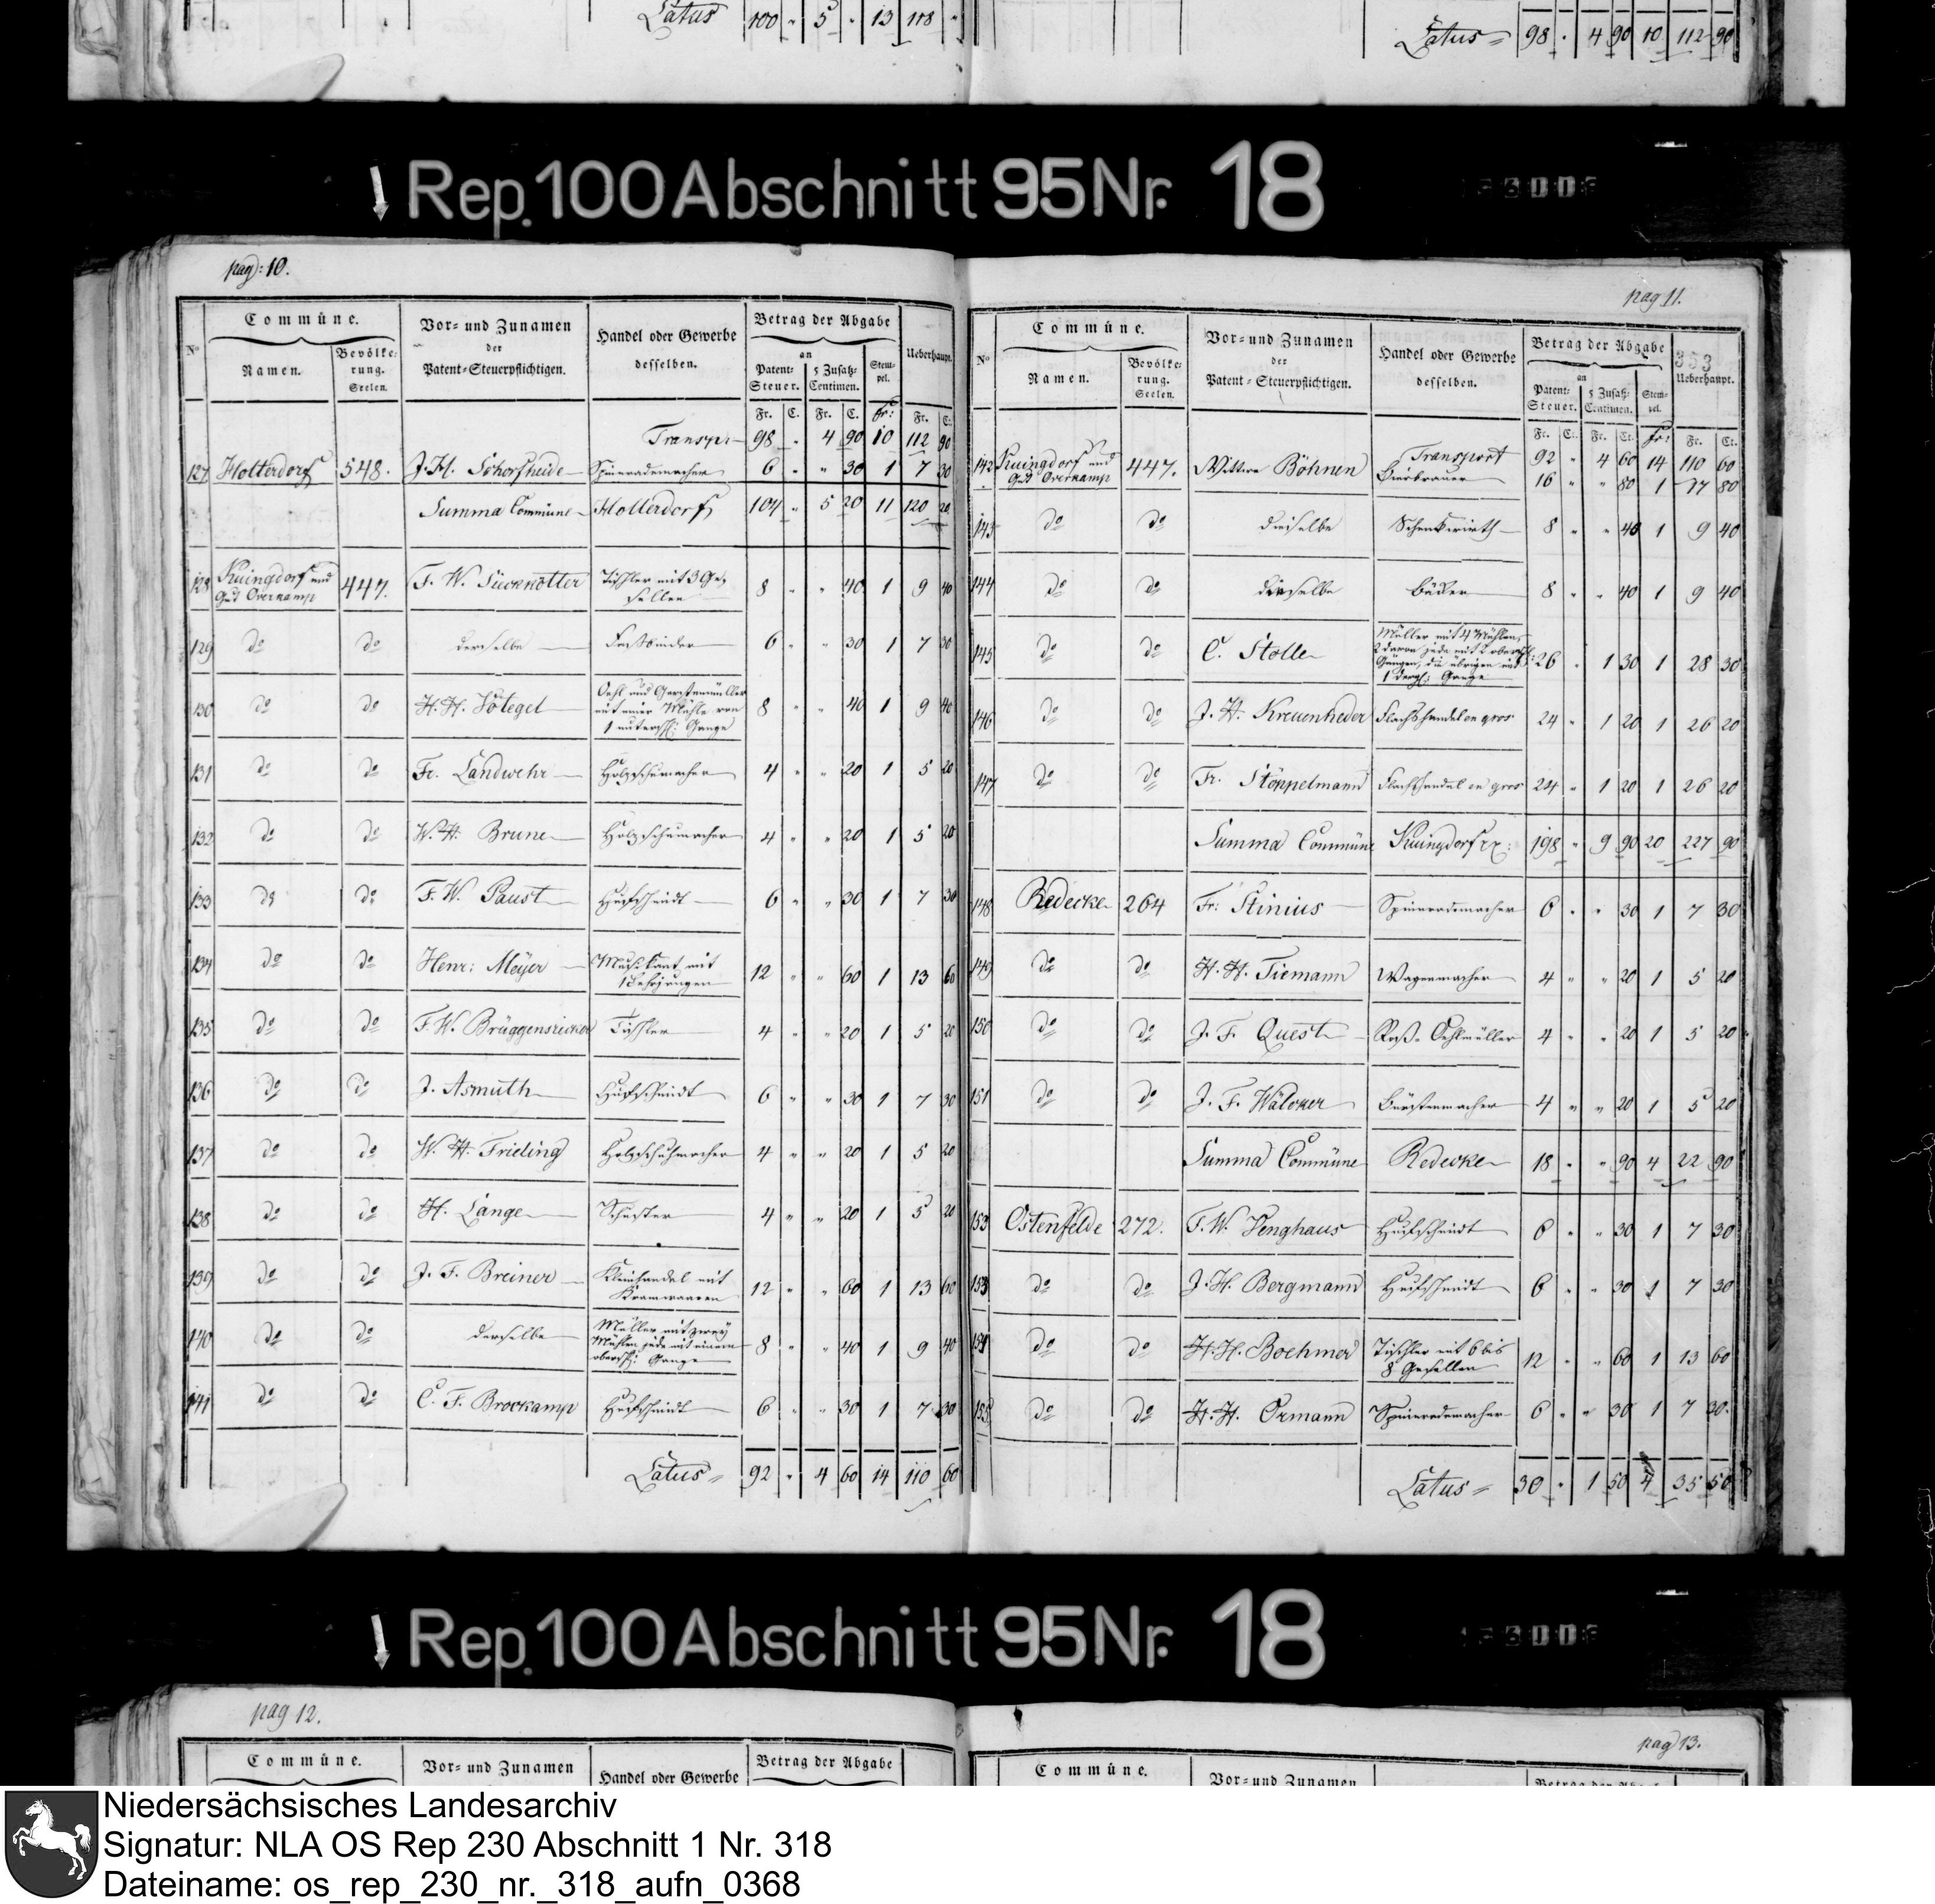 Latus 100 " 5 " 13 118 "
Latus = 98 . 4 90 10 112 90
Rep. 100 Abschnitt 95 Nr. 18
pag: 10.
Commüne.
Nº
Namen.
Bevölke:
rung.
Seelen.
Vor- und Zunamen
der
Patent-Steuerpflichtigen.
Handel oder Gewerbe
desselben.
Betrag der Abgabe
an
Patent-
Steuer.
5 Zusatz-
Centimen.
Stem-
pel.
Ueberhaupt.
Fr. C. Fr. C. fr: Fr. C.
Transp: 98 " 4 90 10 112 90
127 Holterdorf 548. J. H. Schorfheide Spinnrademacher 6 " " 30 1 7 30
Summa Commüne Holterdorf 104 " 5 20 11 120 20
128 Kuingdorf und
Gut Overkamp 447. F. W. Sieckkötter Tischler mit 3 Ge-
sellen 8 " " 40 1 9 40
129 do do derselbe Faßbinder 6 " " 30 1 7 30
130 do do H. H. Pötegel Oehl und Gerstenmüller
mit einer Mühle von
1 unterschl: Gange 8 " " 40 1 9 40
131 do do Fr. Landwehr Holzschumacher 4 " " 20 1 5 20
132 do do W. H. Brune Holzschumacher 4 " " 20 1 5 20
133 do do F. W. Paust Hufschmidt 6 " " 30 1 7 30
134 do do Henr: Meÿer Musikant mit
12 " " 60 1 13 60
135 do do F. W. Brüggensieker Tischler 4 " " 20 1 5 20
136 do do J. Asmuth Hufschmidt 6 " " 30 1 7 30
137 do do W. H. Frieling Holzschuhmacher 4 " " 20 1 5 20
138 do do H. Lange Schuster 4 " " 20 1 5 20
139 do do J. F. Breiner Kleinhandel mit
Kramwaaren 12 " " 60 1 13 60
140 do do derselbe Müller mit zwey
Mühlen jede mit einem
oberschl: Gange 8 " " 40 1 9 40
141 do do C. F. Brockamp Hufschmidt 6 " " 30 1 7 30
Latus = 92 " 4 60 14 110 60
pag 11.
353
Commüne.
Nº
Namen.
Bevölke:
rung.
Seelen.
Vor- und Zunamen
der
Patent-Steuerpflichtigen.
Handel oder Gewerbe
desselben.
Betrag der Abgabe
an
Patent-
Steuer.
5 Zusatz-
Centimen.
Stem-
pel.
Ueberhaupt.
Fr. Ct. Fr. Ct. fr: Fr. Ct.
Transport 92 " 4 60 14 110 60
142 Kuingdorf und
Gut Overkamp 447. Wittwe Böhnen Bierbrauer 16 " " 80 1 17 80
143 do do dieselbe Schenkwirth 8 " " 40 1 9 40
144 do do dieselbe Bäcker 8 " " 40 1 9 40
145 do do C. Stolle Müller mit 4 Mühlen,
2 davon jede mit 2 oberschl:
Gängen, die übrigen mit
1 dergl: Gange 26 . 1 30 1 28 30
146 do do J. H. Kreuenheder Flachshandel en gros 24 " 1 20 1 26 20
147 do do Fr. Stöppelmann Flachshandel en gros 24 " 1 20 1 26 20
Summa Commüne Kuingdorf 198 " 9 90 20 227 90
148 Redecke 264 Fr: Stinius Spinnrademacher 6 " " 30 1 7 30
149 do do H. H. Tiemann Wagenmacher 4 " " 20 1 5 20
150 do do J. F. Quest Roß-Oehlmüller 4 " " 20 1 5 20
151 do do J. F. Wälcker Bürstenmacher 4 " " 20 1 5 20
Summa Commüne Redecke 18 " " 90 4 22 90
153 Ostenfelde 272. F. W. Venghaus Hufschmidt 6 " " 30 1 7 30
153 do do J. H. Bergmann Hufschmidt 6 " " 30 1 7 30
154 do do H. H. Boehmer Tischler mit 6 bis
8 Gesellen 12 " " 60 1 13 60
155 do do H. H. Ormann Spinnrademacher 6 " " 30 1 7 30.
Latus = 30 " 1 50 4 35 50
Rep. 100 Abschnitt 95 Nr. 18
pag 12.
Commüne.
Vor- und Zunamen
Handel oder Gewerbe
Betrag der Abgabe
pag 13.
Commüne.
Vor- und Zunamen
Niedersächsisches Landesarchiv
Signatur: NLA OS Rep 230 Abschnitt 1 Nr. 318
Dateiname: os_rep_230_nr._318_aufn_0368